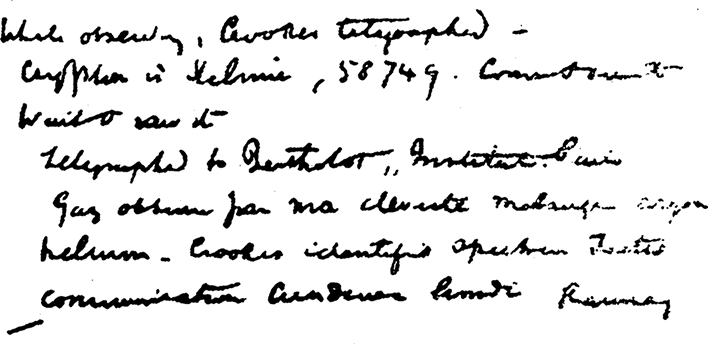 While observing, Crookes telegraphed –
Krypton is Helium, 58749. Come & see it
Went & saw it
Telegraphed to Berthelot, Institut. Paris
Gaz obtenu par moi clevite melange argon
helium – Crookes identifie spectre. Faites
communication Academie lundi Ramsay